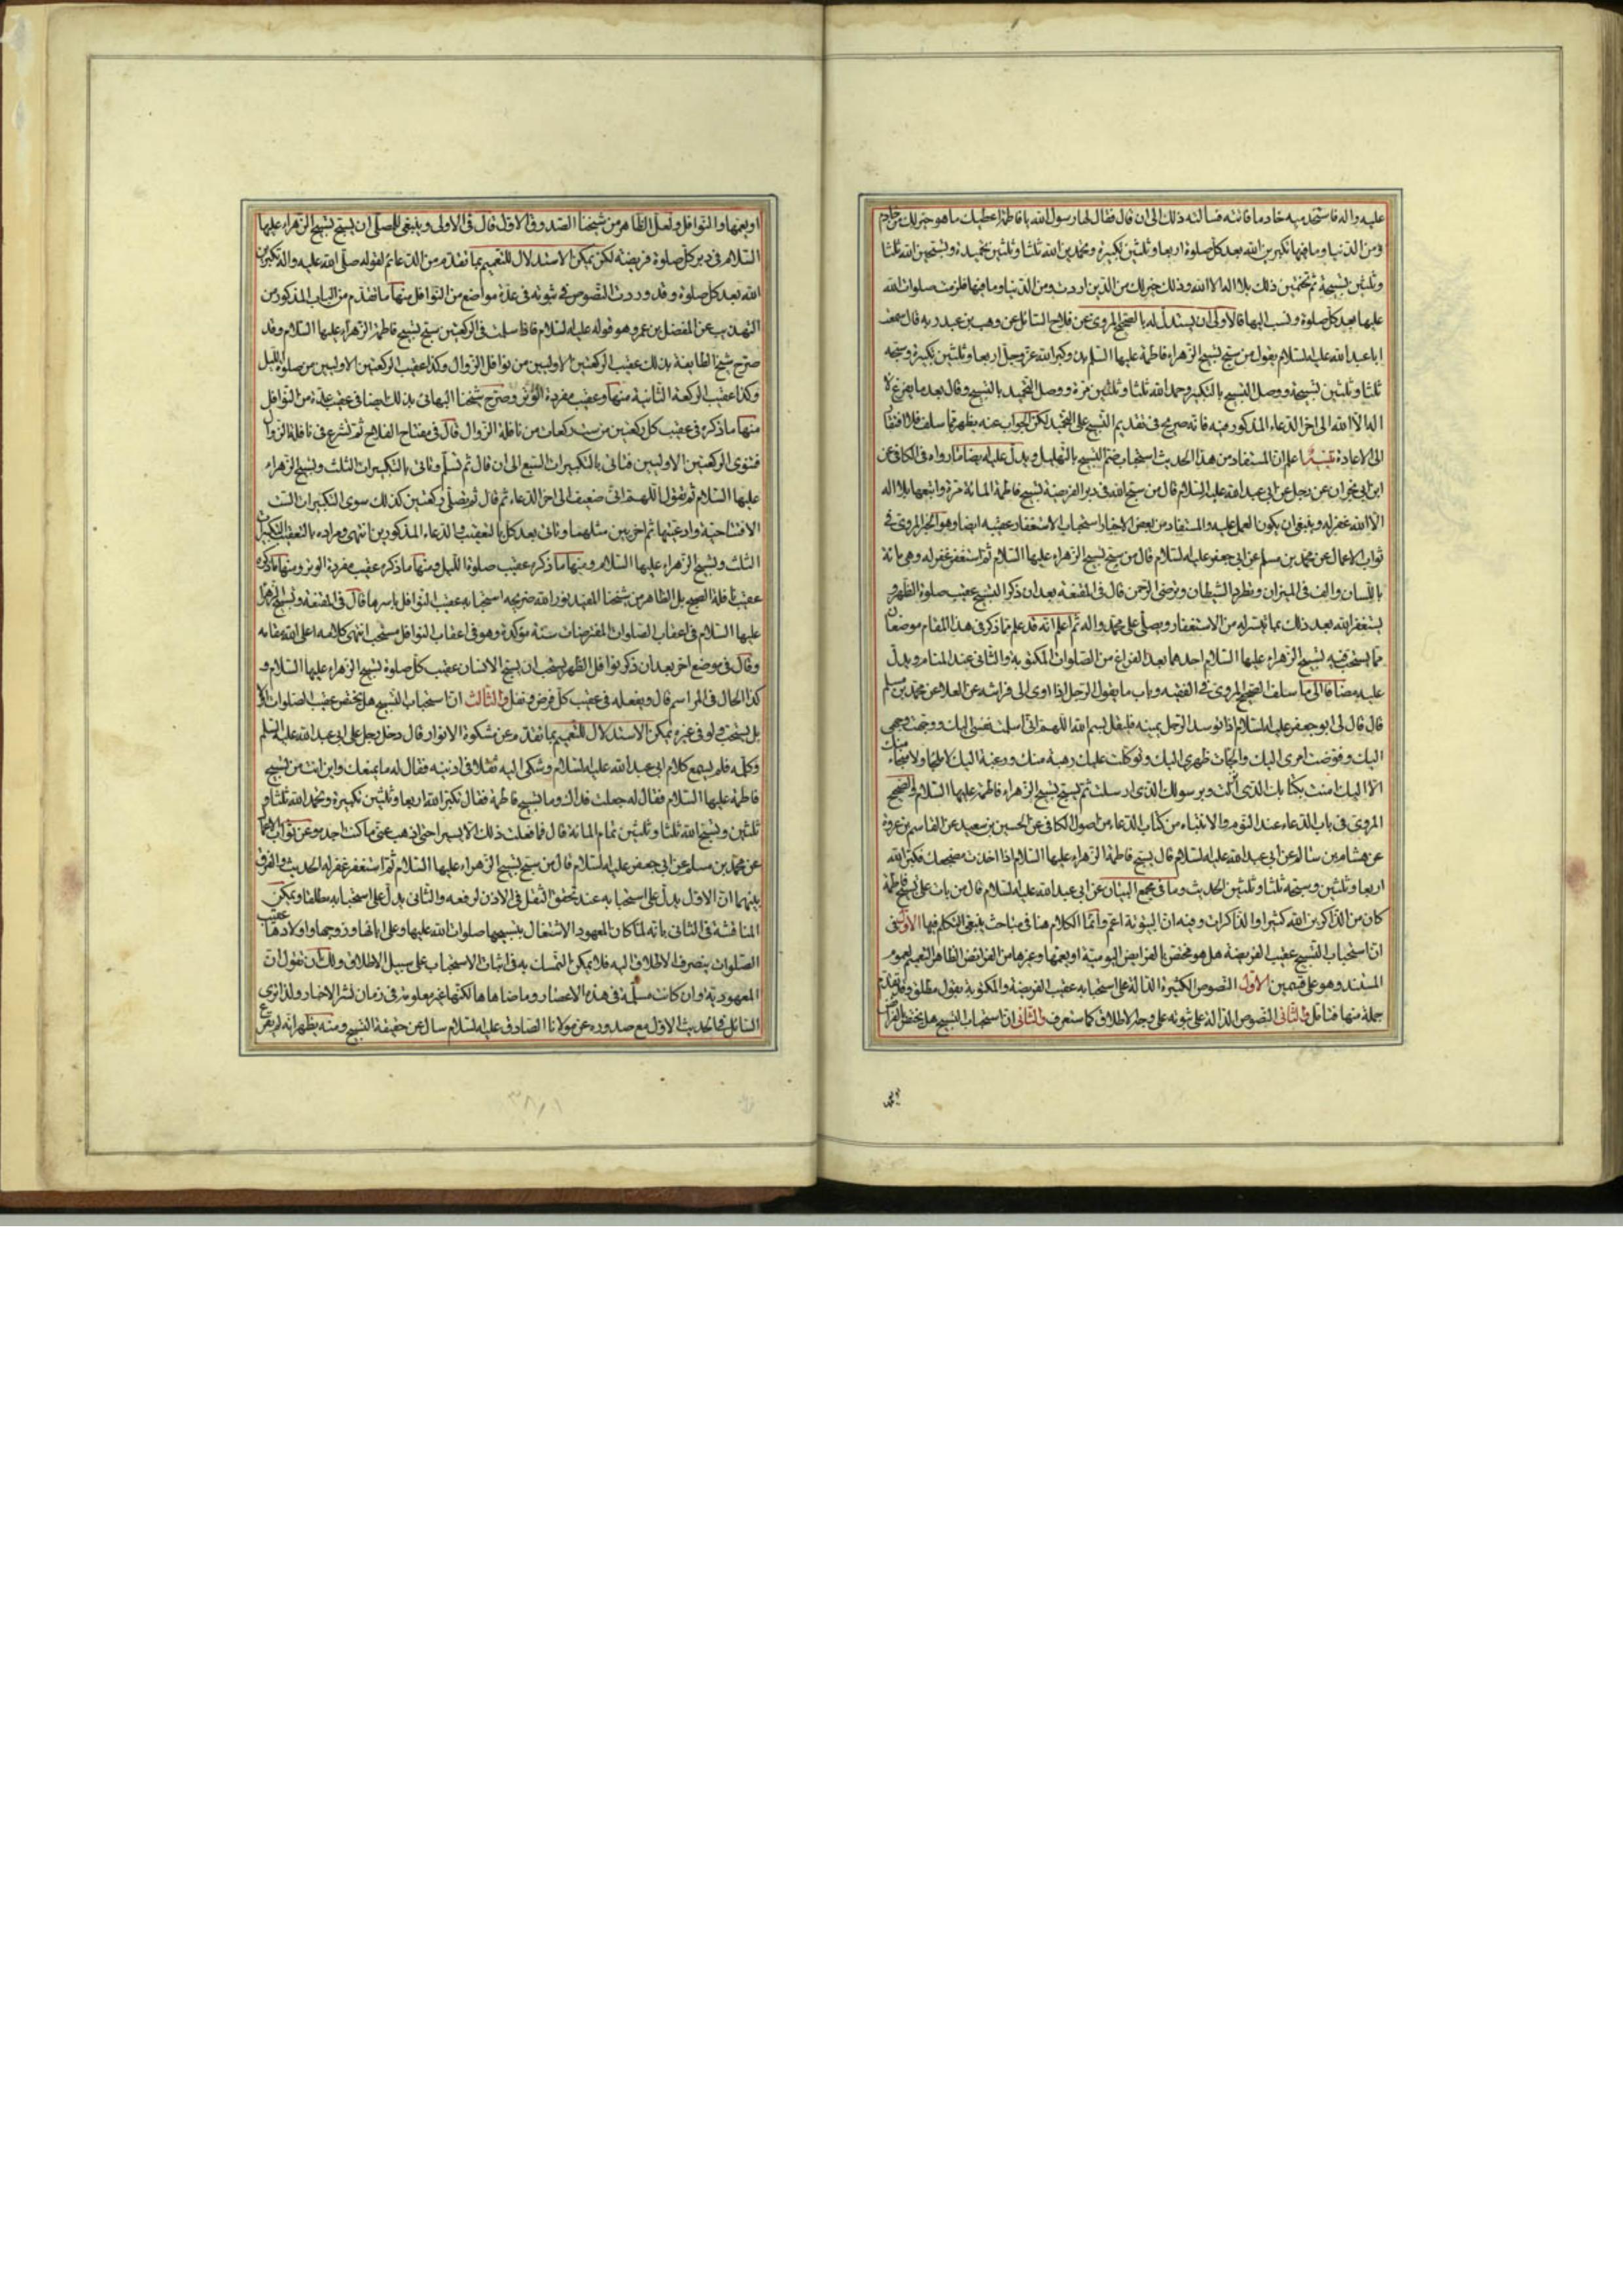 عليه واله فاستخدميه خادما فاتته فسالته ذلك الى ان قال فقال لها رسول الله يا فاطمة اعطيك ما هو خير لك من خادم
ومن الدنيا وما فيها تكبرين الله بعد كل صلوة اربعا وثلثين تكبيرة وتحمدين الله ثلثا وثلثين تحميدة وتسبحين الله ثلثا
وثلثين تسبيحة ثم تختمين ذلك بلا اله الا الله وذلك خير لك من الذين اردت ومن الدنيا وما فيها فلزمت صلوات الله
عليها بعد كل صلوة ونسب اليها فالاولى ان يستدل له بالصحيح المروى عن فلاح السائل عن وهب بن عبد ربه قال سمعت
ابا عبد الله عليه السلام يقول من سبح تسبيح الزهراء فاطمة عليها السلام بدء وكبر الله عز وجل اربعا وثلثين تكبيرة وسبحه
ثلثا وثلثين تسبيحة ووصل التسبيح بالتكبير وحمد الله ثلثا وثلثين مرة ووصل التحميد بالتسبيح وقال بعد ما يفرغ لا
اله الا الله الى اخر الدعاء المذكور فيه فانه صريح فى تقديم التسبيح على التحميد لكن الجواب عنه يظهر مما سلف فلا افتقار
الى الاعادة تنبيه اعلم ان المستفاد من هذا الحديث استحباب ضم التسبيح بالتهليل ويدل عليه ايضا ما رواه فى الكافى عن
ابن ابى نجران عن رجل عن ابى عبد الله عليه السلام قال من سبح الله فى دبر الفريضة تسبيح فاطمة المائة مرة واتبعها بلا اله
الا الله غفر له وينبغى ان يكون العمل عليه والمستفاد من بعض الاخبار استحباب الاستغفار عقيبه ايضا وهو الخبر المروى فى
ثواب الاعمال عن محمد بن مسلم عن ابى جعفر عليه السلام قال من سبح تسبيح الزهراء عليها السلام ثم استغفر غفر له وهى مائة
باللسان والف فى الميزان وتطرد الشيطان وترضى الرحمن قال فى المقنعة بعد ان ذكر التسبيح عقيب صلوة الظهر و
يستغفر الله بعد ذلك بما تيسر له من الاستغفار ويصلى على محمد واله ثم اعلم انه قد علم مما ذكر فى هذا المقام موضعان
مما يستحب فيه تسبيح الزهراء عليها السلام احدهما بعد الفراغ من الصلوات المكتوبة والثانى عند المنام ويدل
عليه مضافا الى ما سلف الصحيح المروى فى الفقيه وباب ما يقول الرجل اذا اوى الى فراشه عن العلا عن محمد بن مسلم
قال قال لى ابو جعفر عليه السلام اذا توسد الرجل يمينه فليقل بسم الله اللهم انى اسلمت نفسى اليك ووجهت وجهى
اليك وفوضت امرى اليك والجات ظهرى اليك وتوكلت عليك رهبة منك ورغبة اليك لا ملجا ولا منجا منك
الا اليك امنت بكتابك الذى انزلت وبرسولك الذى ارسلت ثم يسبح تسبيح الزهراء فاطمة عليها السلام والصحيح
المروى فى باب الدعاء عند النوم والانتباه من كتاب الدعاء من اصول الكافى عن الحسين بن سعيد عن القاسم بن عروة
عن هشام بن سالم عن ابى عبد الله عليه السلام قال تسبيح فاطمة الزهراء عليها السلام اذا اخذت مضجعك فكبر الله
اربعا وثلثين وسبحه ثلثا وثلثين الحديث وما فى مجمع البيان عن ابى عبد الله عليه السلام قال من بات على تسبيح فاطمة
كان من الذاكرين الله كثيرا والذاكرات وفيه ان البيتوتة اعم وانما الكلام هنا فى مباحث ينبغى التكلم فيها الاول فى
ان استحباب التسبيح عقيب الفريضة هل هو مختص بالفرايض اليومية او يعمها وغيرها من الفرائض الظاهر التعميم لعموم
المستند وهو على قسمين الاول النصوص الكثيرة الدالة على استحبابه عقيب الفريضة والمكتوبة بقول مطلق وقد تقدم
جملة منها فتامل والثانى النصوص الدالة على ثبوته على وجه الاطلاق كما ستعرف والثانى ان استحباب التسبيح هل يختص بالفرائض
او يعمها والنوافل ولعل الظاهر من شيخنا الصدوق الاول قال فى الامالى وينبغى للمصلى ان يسبح تسبيح الزهراء عليها
السلام فى دبر كل صلوة فريضة لكن يمكن الاستدلال للتعميم بما تقدم من الدعائم لقوله صلى الله عليه واله تكبرين
الله بعد كل صلوة وقد وردت النصوص فى ثبوته فى عدة مواضع من النوافل منها ما تقدم من الباب المذكور من
التهذيب عن المفضل بن عمر وهو قوله عليه السلام فاذا سلمت فى الركعتين سبح تسبيح فاطمة الزهراء عليها السلام وقد
صرح شيخ الطائفة بذلك عقيب الركعتين الاوليين من نوافل الزوال وكذا عقيب الركعتين الاوليين من صلوة الليل
وكذا عقيب الركعة الثانية منها وعقيب مفردة الوتر وصرح شيخنا البهائى بذلك ايضا فى عقيب عدة من النوافل
منها ما ذكره فى عقيب كل ركعتين من ست ركعات من نافلة الزوال قال فى مفتاح الفلاح ثم تشرع فى نافلة الزوال
فتنوى الركعتين الاوليين فتاتى بالتكبيرات السبع الى ان قال ثم تسلم وتاتى بالتكبيرات الثلث وتسبيح الزهراء
عليها السلام ثم تقول اللهم انى ضعيف الى اخر الدعاء ثم قال ثم تصلى ركعتين كذلك سوى التكبيرات الست
الافتتاحية وادعيتها ثم اخريين مثلهما وتاتى بعد كل بالتعقيب والدعاء المذكورين انتهى ومراده بالتعقيب التكبيرات
الثلث وتسبيح الزهراء عليها السلام ومنها ما ذكره عقيب صلوة الليل ومنها ما ذكره عقيب مفردة الوتر ومنها ما ذكره
عقيب نافلة الصبح بل الظاهر من شيخنا المفيد نور الله ضريحه استحبابه عقيب النوافل باسرها قال فى المقنعة وتسبيح الزهراء
عليها السلام فى اعقاب الصلوات المفترضات سنة مؤكدة وهو فى اعقاب النوافل مستحب انتهى كلامه اعلى الله مقامه
وقال فى موضع اخر بعد ان ذكر نوافل الظهر يستحب ان يسبح الانسان عقيب كل صلوة تسبيح الزهراء عليها السلام و
كذا الحال فى المراسم قال ويفعله فى عقيب كل فرض ونفل والثالث ان استحباب التسبيح هل يختص عقيب الصلوات او لا
بل يستحب ولو فى غيره يمكن الاستدلال للتعميم بما تقدم عن مشكوة الانوار قال دخل رجل على ابى عبد الله عليه السلام
وكلمه فلم يسمع كلام ابى عبد الله عليه السلام وشكى اليه ثقلا فى اذنيه فقال له ما يمنعك واين انت من تسبيح
فاطمة عليها السلام فقال له جعلت فداك وما تسبيح فاطمة فقال تكبر الله اربعا وثلثين تكبيرة وتحمد الله ثلثا و
ثلثين وتسبح الله ثلثا وثلثين تمام المائة قال فما فعلت ذلك الا يسيرا حتى اذهب عنى ما كنت اجده وعن ثواب الاعمال
عن محمد بن مسلم عن ابى جعفر عليه السلام قال من سبح تسبيح الزهراء عليها السلام ثم استغفر غفر له الحديث والفرق
بينهما ان الاول يدل على استحبابه عند تحقق الثقل فى الاذن لرفعه والثانى يدل على استحبابه مطلقا ويمكن
المناقشة فى الثانى بانه لما كان المعهود الاشتغال بتسبيحها صلوات الله عليها وعلى ابائها وزوجها واولادها عقيب
الصلوات ينصرف الاطلاق اليه فلا يمكن التمسك به فى اثبات الاستحباب على سبيل الاطلاق ولك ان تقول ان
المعهودية وان كانت مسلمة فى هذه الاعصار وما ضاهاها لكنها غير معلومة فى زمان نشر الاخبار ولذا ترى
السائل فى الحديث الاول مع صدوره عن مولانا الصادق عليه السلام سال عن حقيقة التسبيح ومنه يظهر انه لم يقرع